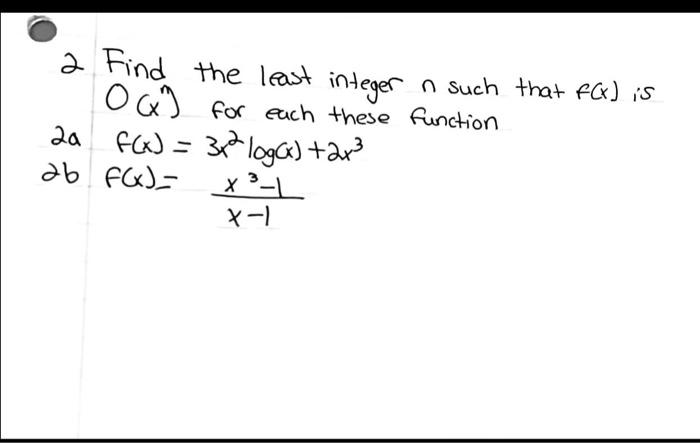 2 Find the least integer n such that f(x) is
O(xⁿ) for each these function
2a f(x) = 3x² log(x) + 2x³
2b f(x) = x³-1
x-1